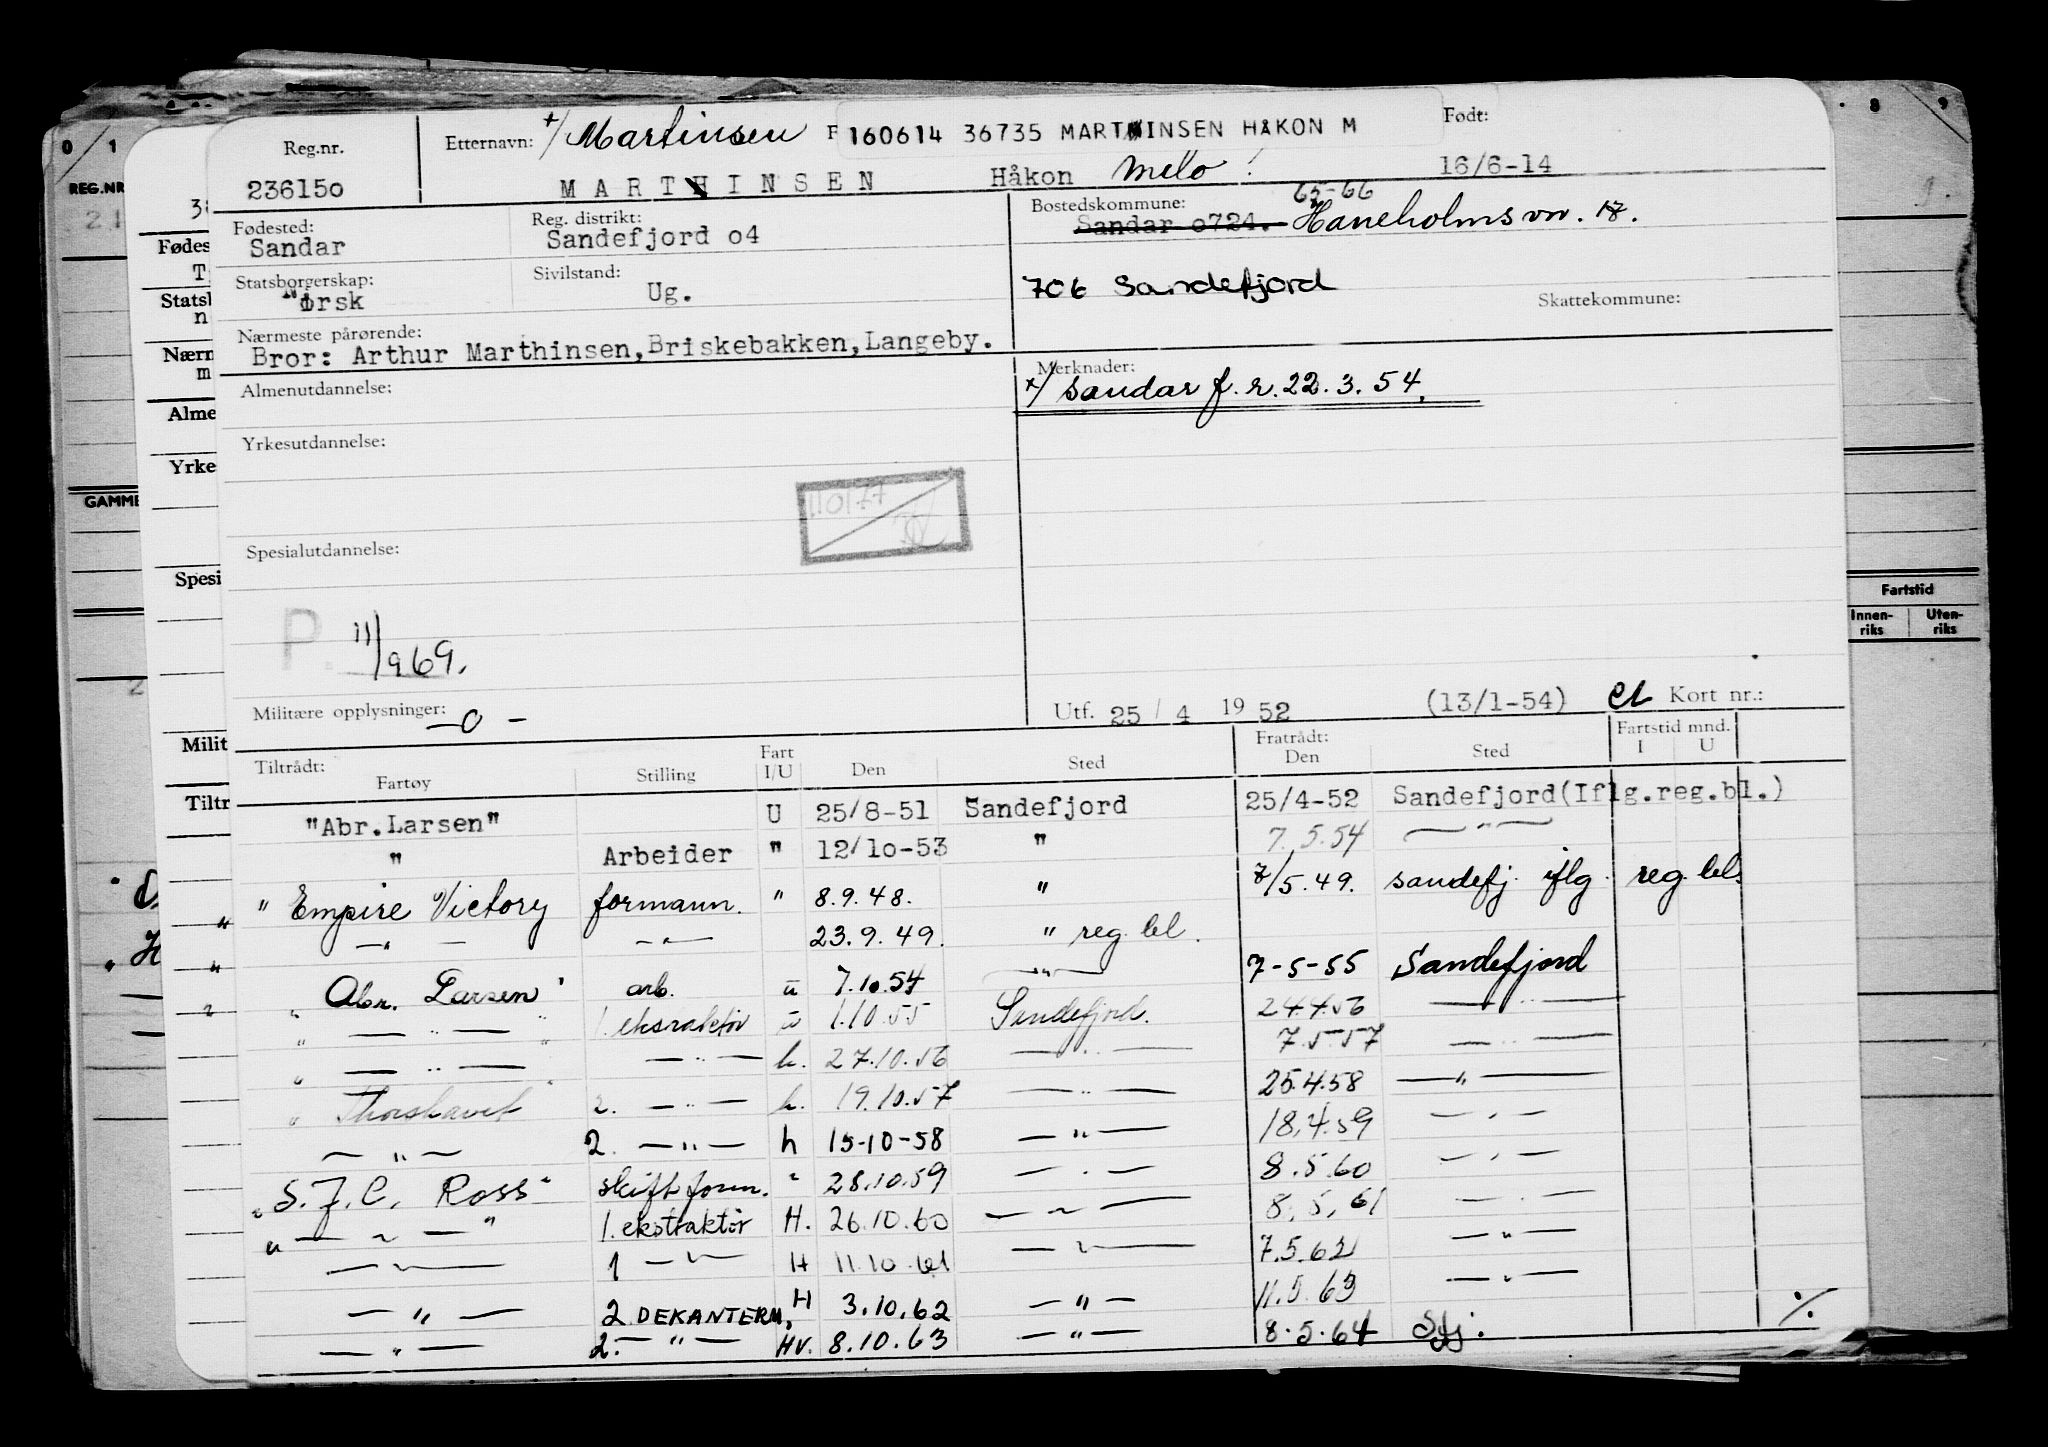 Reg.nr. Etternavn: +/ Martinsen F 160614 36735 MARTHINSEN HÅKON M Født:
236150 MARTHINSEN Håkon Melo ! 16/6-14
Fødested: Reg. distrikt: Bostedskommune: 65-66
Sandar Sandefjord o4 Sandar o724. Haneholmsvn. 17.
Statsborgerskap: Sivilstand:
Norsk Ug. 706 Sandefjord
Skattekommune:
Nærmeste pårørende:
Bror: Arthur Marthinsen, Briskebakken, Langeby.
Almenutdannelse: Merknader:
+/ Sandar f. r. 22.3.54.
Yrkesutdannelse:
11/01 77
Spesialutdannelse:
P. 11/969.
Militære opplysninger: -0-
Utf. 25 / 4 1952 (13/1-54) Kort nr.:
Tiltrådt: Fart Fratrådt: Fartstid mnd.
Fartøy Stilling I/U Den Sted Den Sted I U
"Abr.Larsen" U 25/8-51 Sandefjord 25/4-52 Sandefjord(Iflg.reg.bl.)
" Arbeider " 12/10-53 " 7.5.54 — " —
" Empire Victory formann. " 8.9.48. " 7/5.49. Sandefj. iflg. reg. bl.
— " — — " — 23.9.49. " reg. bl.
" Abr. Larsen " arb. u 7.10.54 — " — 7-5-55 Sandefjord
" — " — " 1. eksraktør u 1.10.55 Sandefjord. 24.4.56 — " —
" — " — — " — h. 27.10.56 — " — 7.5.57 — " —
" Thorshavet " 2. — " — h. 19.10.57 — " — 25.4.58 — " —
— " — 2. — " — h 15-10-58 — " — 18.4.59 — " —
" S. J. C. Ross " skift form. " 28.10.59 — " — 8.5.60 — " —
" — " — " 1. ekstraktør H. 26.10.60 — " — 8.5.61 — " —
— " — 1 — " — H 11.10.61 — " — 7.5.62 — " —
— " — 2 DEKANTERM. H 3.10.62 — " — 11.5.63 — " —
— " — 2. — " — HV. 8.10.63 — " — 8.5.64 Sfj.
%
0 1
REG.NR
21
Fødes
Statsl
n
Nærn
m
Alme
Yrke
GAMME
Spesi
Milit
Tiltr
8 9
1.
Fartstid
Innen-riks Uten-riks